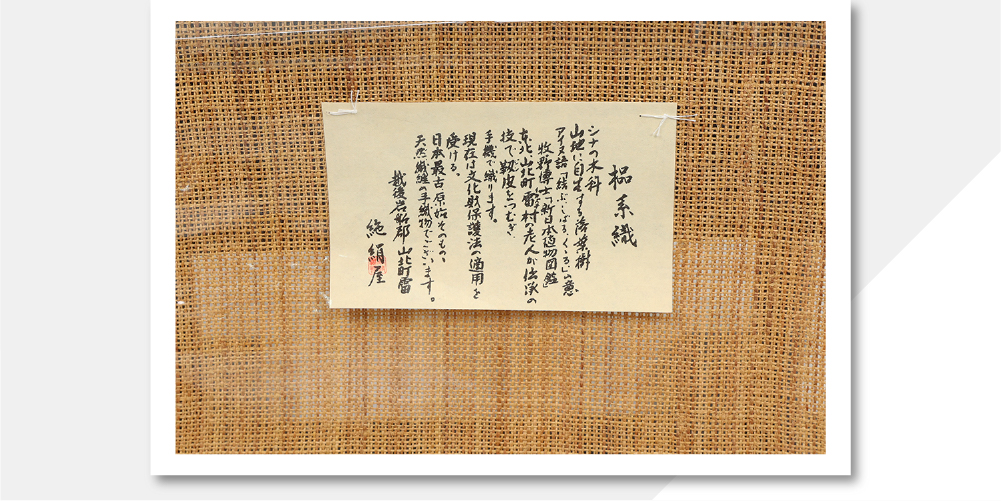 榀糸織
シナの木科
山地に自生する落葉樹
アイヌ語「結ぶ、しばる、くくる」の意
牧野博士「新日本植物図鑑」
東北 山北町雷村の老人が伝承の
技で靱皮をつむぎ
手機で織ります。
現在は文化財保護法の適用を
受ける。
日本最古 原始そのもの、
天然繊維の手織物でございます。
越後岩船郡 山北町雷
絹屋